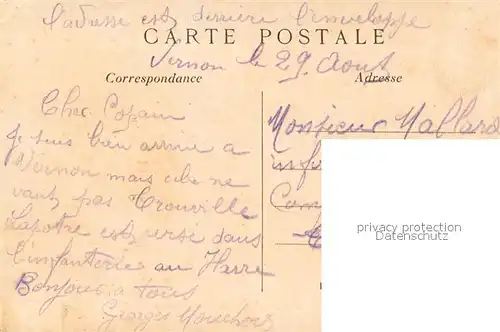 l'adresse est derriere l'enveloppe
CARTE POSTALE
Vernon le 29 Aout
Correspondance
Adresse
Cher Copain
Je suis bien arrive a
Vernon mais cela ne
vaut pas Trouville
Lapotre est versé dans
l'infanterie au Havre
Bonjour a tous
Georges
Monsieur Mallard
privacy protection
Datenschutz